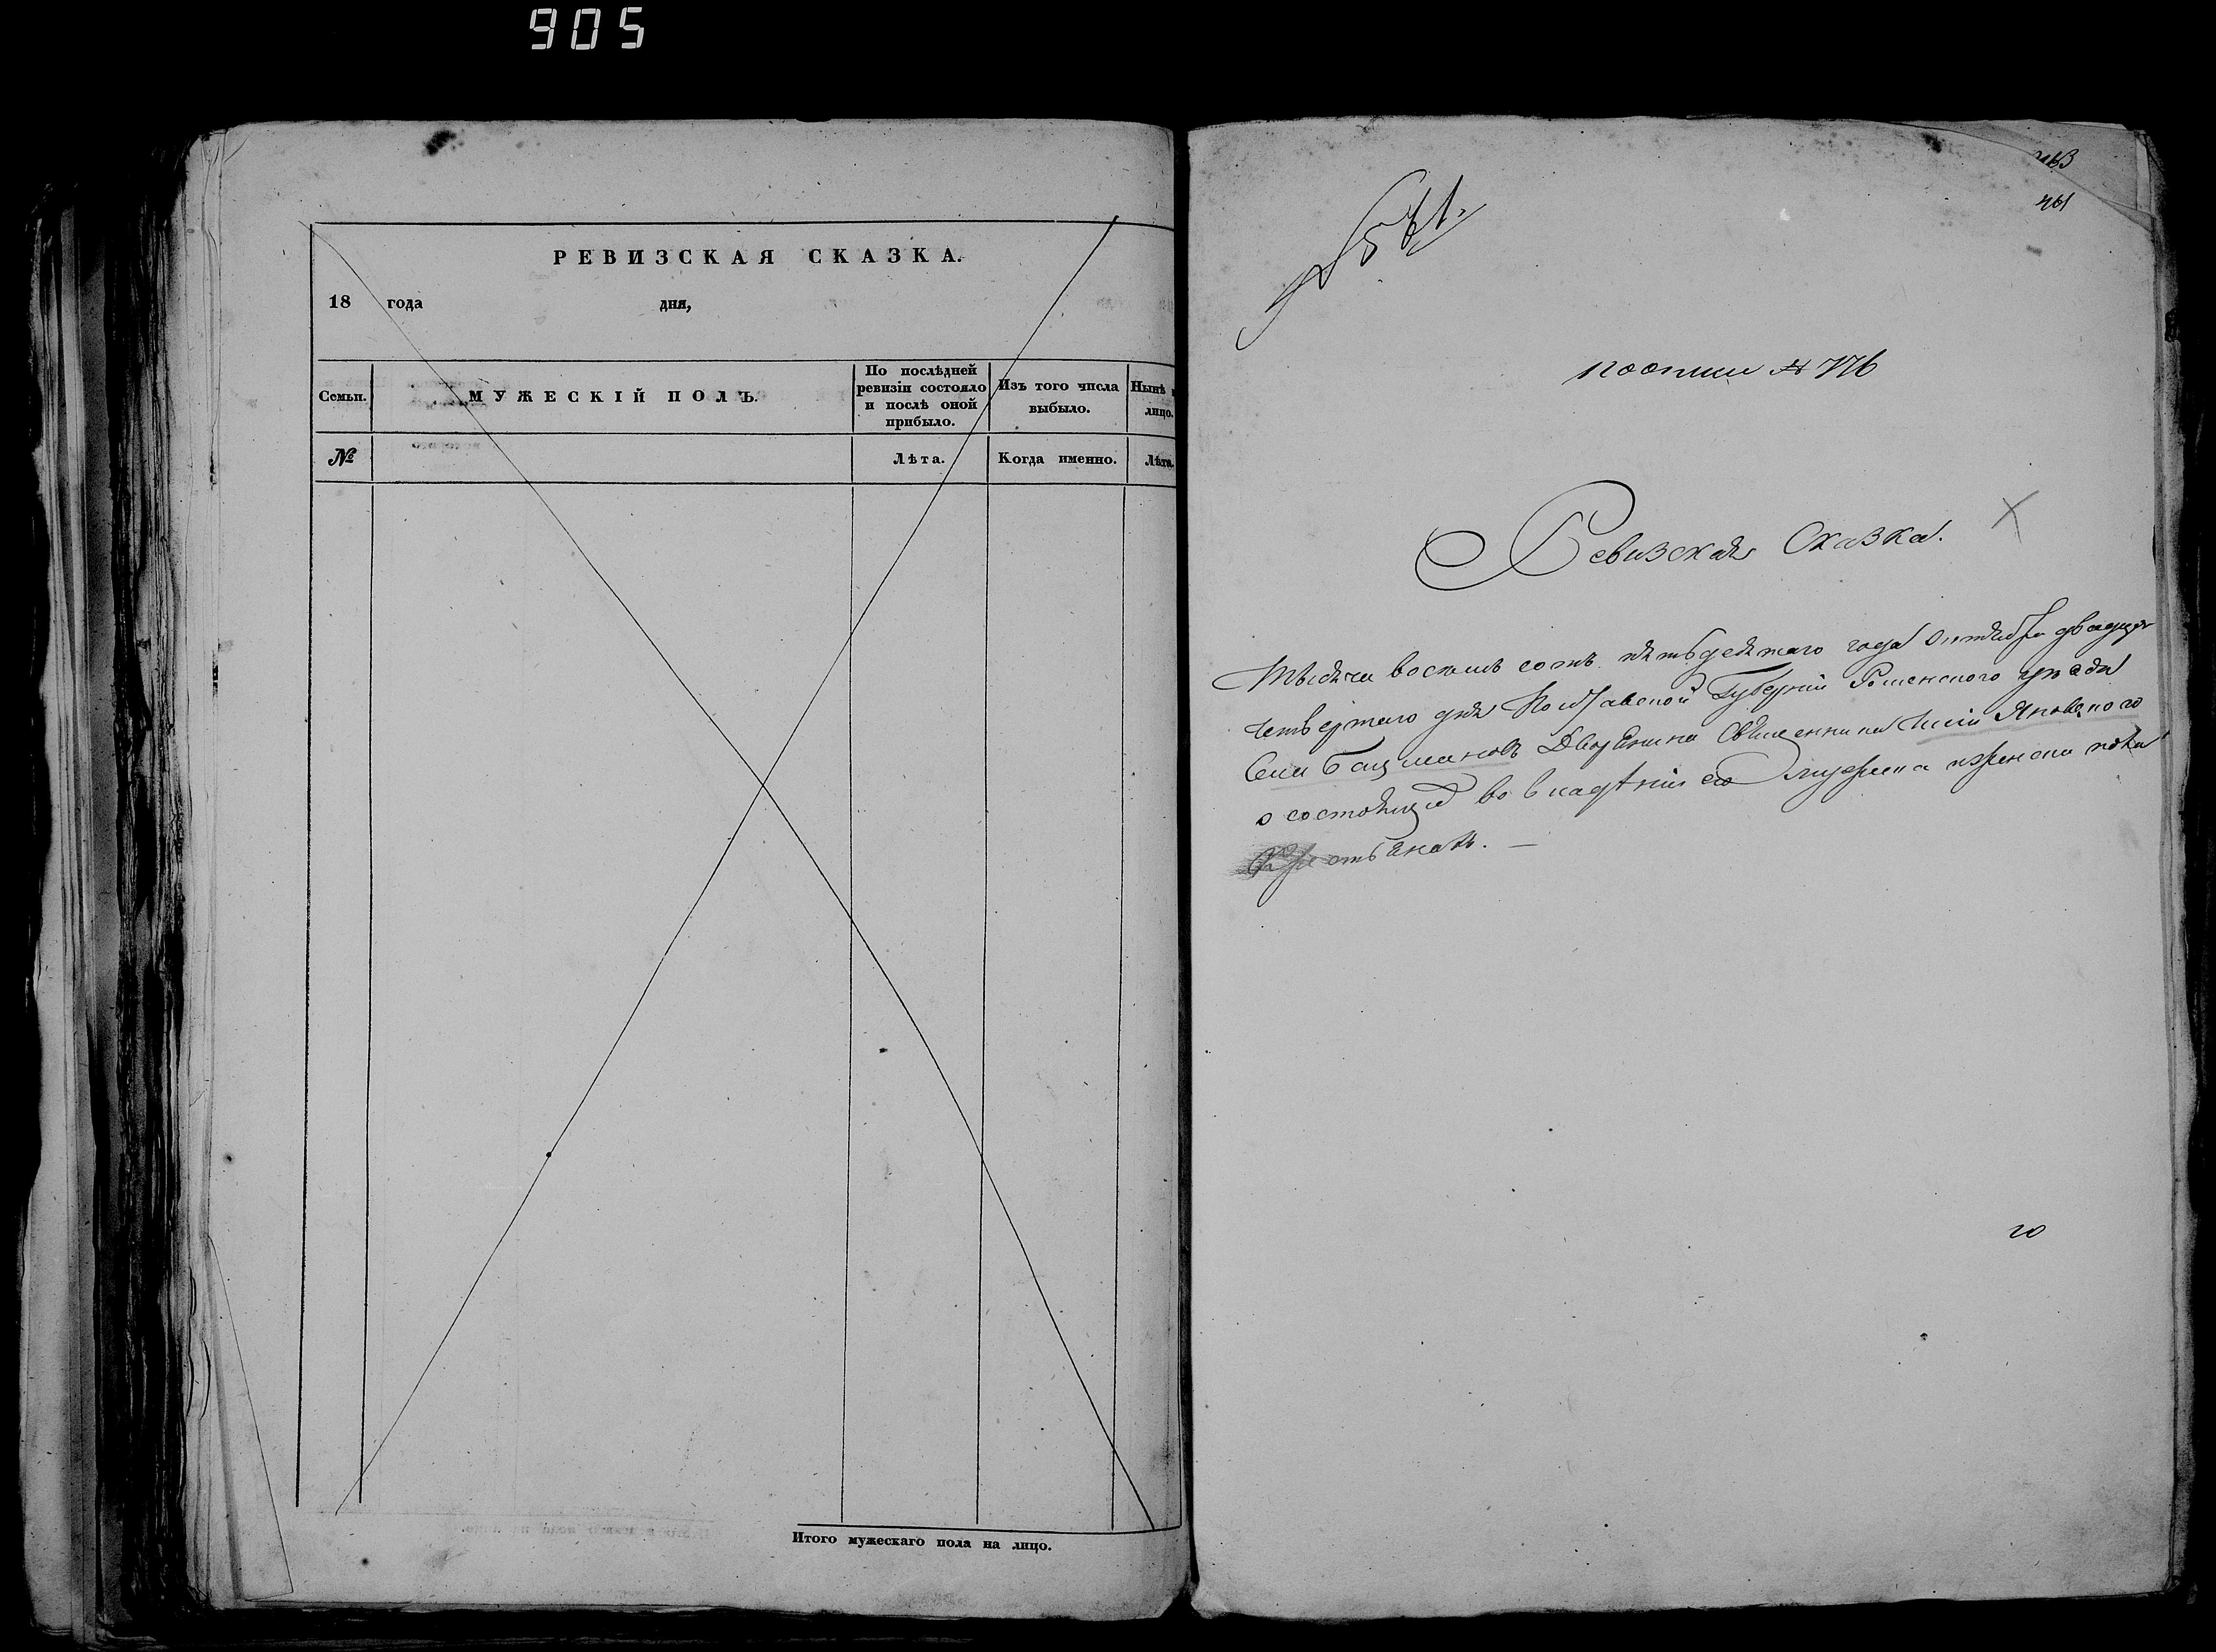 905
РЕВИЗСКАЯ СКАЗКА.
18 года дня,
Семьи. МУЖЕСКІЙ ПОЛЪ. По послѣдней ревизіи состояло и послѣ оной прибыло. Изъ того числа выбыло. Нынѣ лицо.
№ Лѣта. Когда именно. Лѣта.
Итого мужескаго пола на лицо.
461
по описи № 776
Ревизская Сказка.
Тысяча восемь сотъ пятьдесятаго года Октября двадцать
четвертаго дня Полтавской Губерніи Роменского уезда
Села Бацмановъ Дворянина Священника Яновского
о состоящих во владѣніи его мужеска и женска пола
Крестьянахъ. —
20